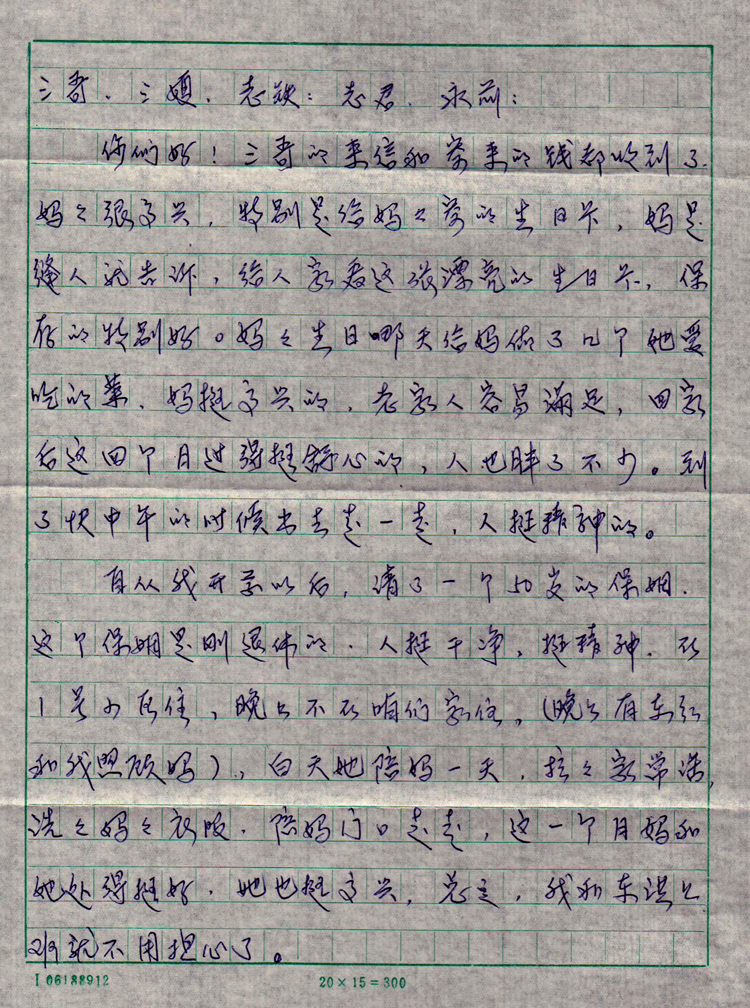 三哥、三嫂、志铁:志君、永前:
你们好!三哥的来信和寄来的钱都收到了.
妈々很高兴,特别是给妈々寄的生日卡,妈是
缝人就告诉,给人家看这张漂亮的生日卡,保
存的特别好。妈々生日哪天给妈做了几个她爱
吃的菜、妈挺高兴的,老家人容易满足,回家
后这四个月过得挺舒心的,人也胖了不少。到
了快中午的时候出去走一走,人挺精神的。
自从我开学以后,请了一个50岁的保姆.
这个保姆是刚退休的.人挺干净,挺精神.在
1号少居住,晚上不在咱们家住,(晚上有东
和我照顾妈),白天她陪妈一天.拉々家常话,
洗々妈々衣服.陪妈门口走走,这一个月妈和
她处得挺好.她也挺高兴,总之,我和东 上
班就不用担心了。
I 06188912
20×15=300